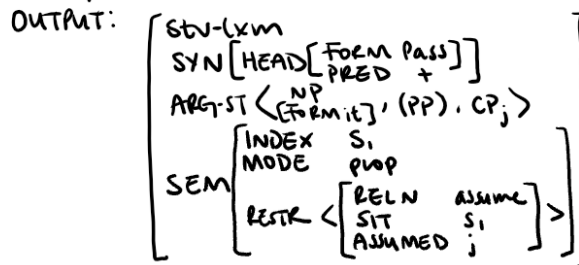 OUTPUT:
stv-lxm
SYN [HEAD [FORM Pass
PRED +]]
ARG-ST < NP [FORM it], (PP), CPj >
INDEX S1
MODE prop
SEM
RESTR < [RELN assume
SIT s1
ASSUMED j] >